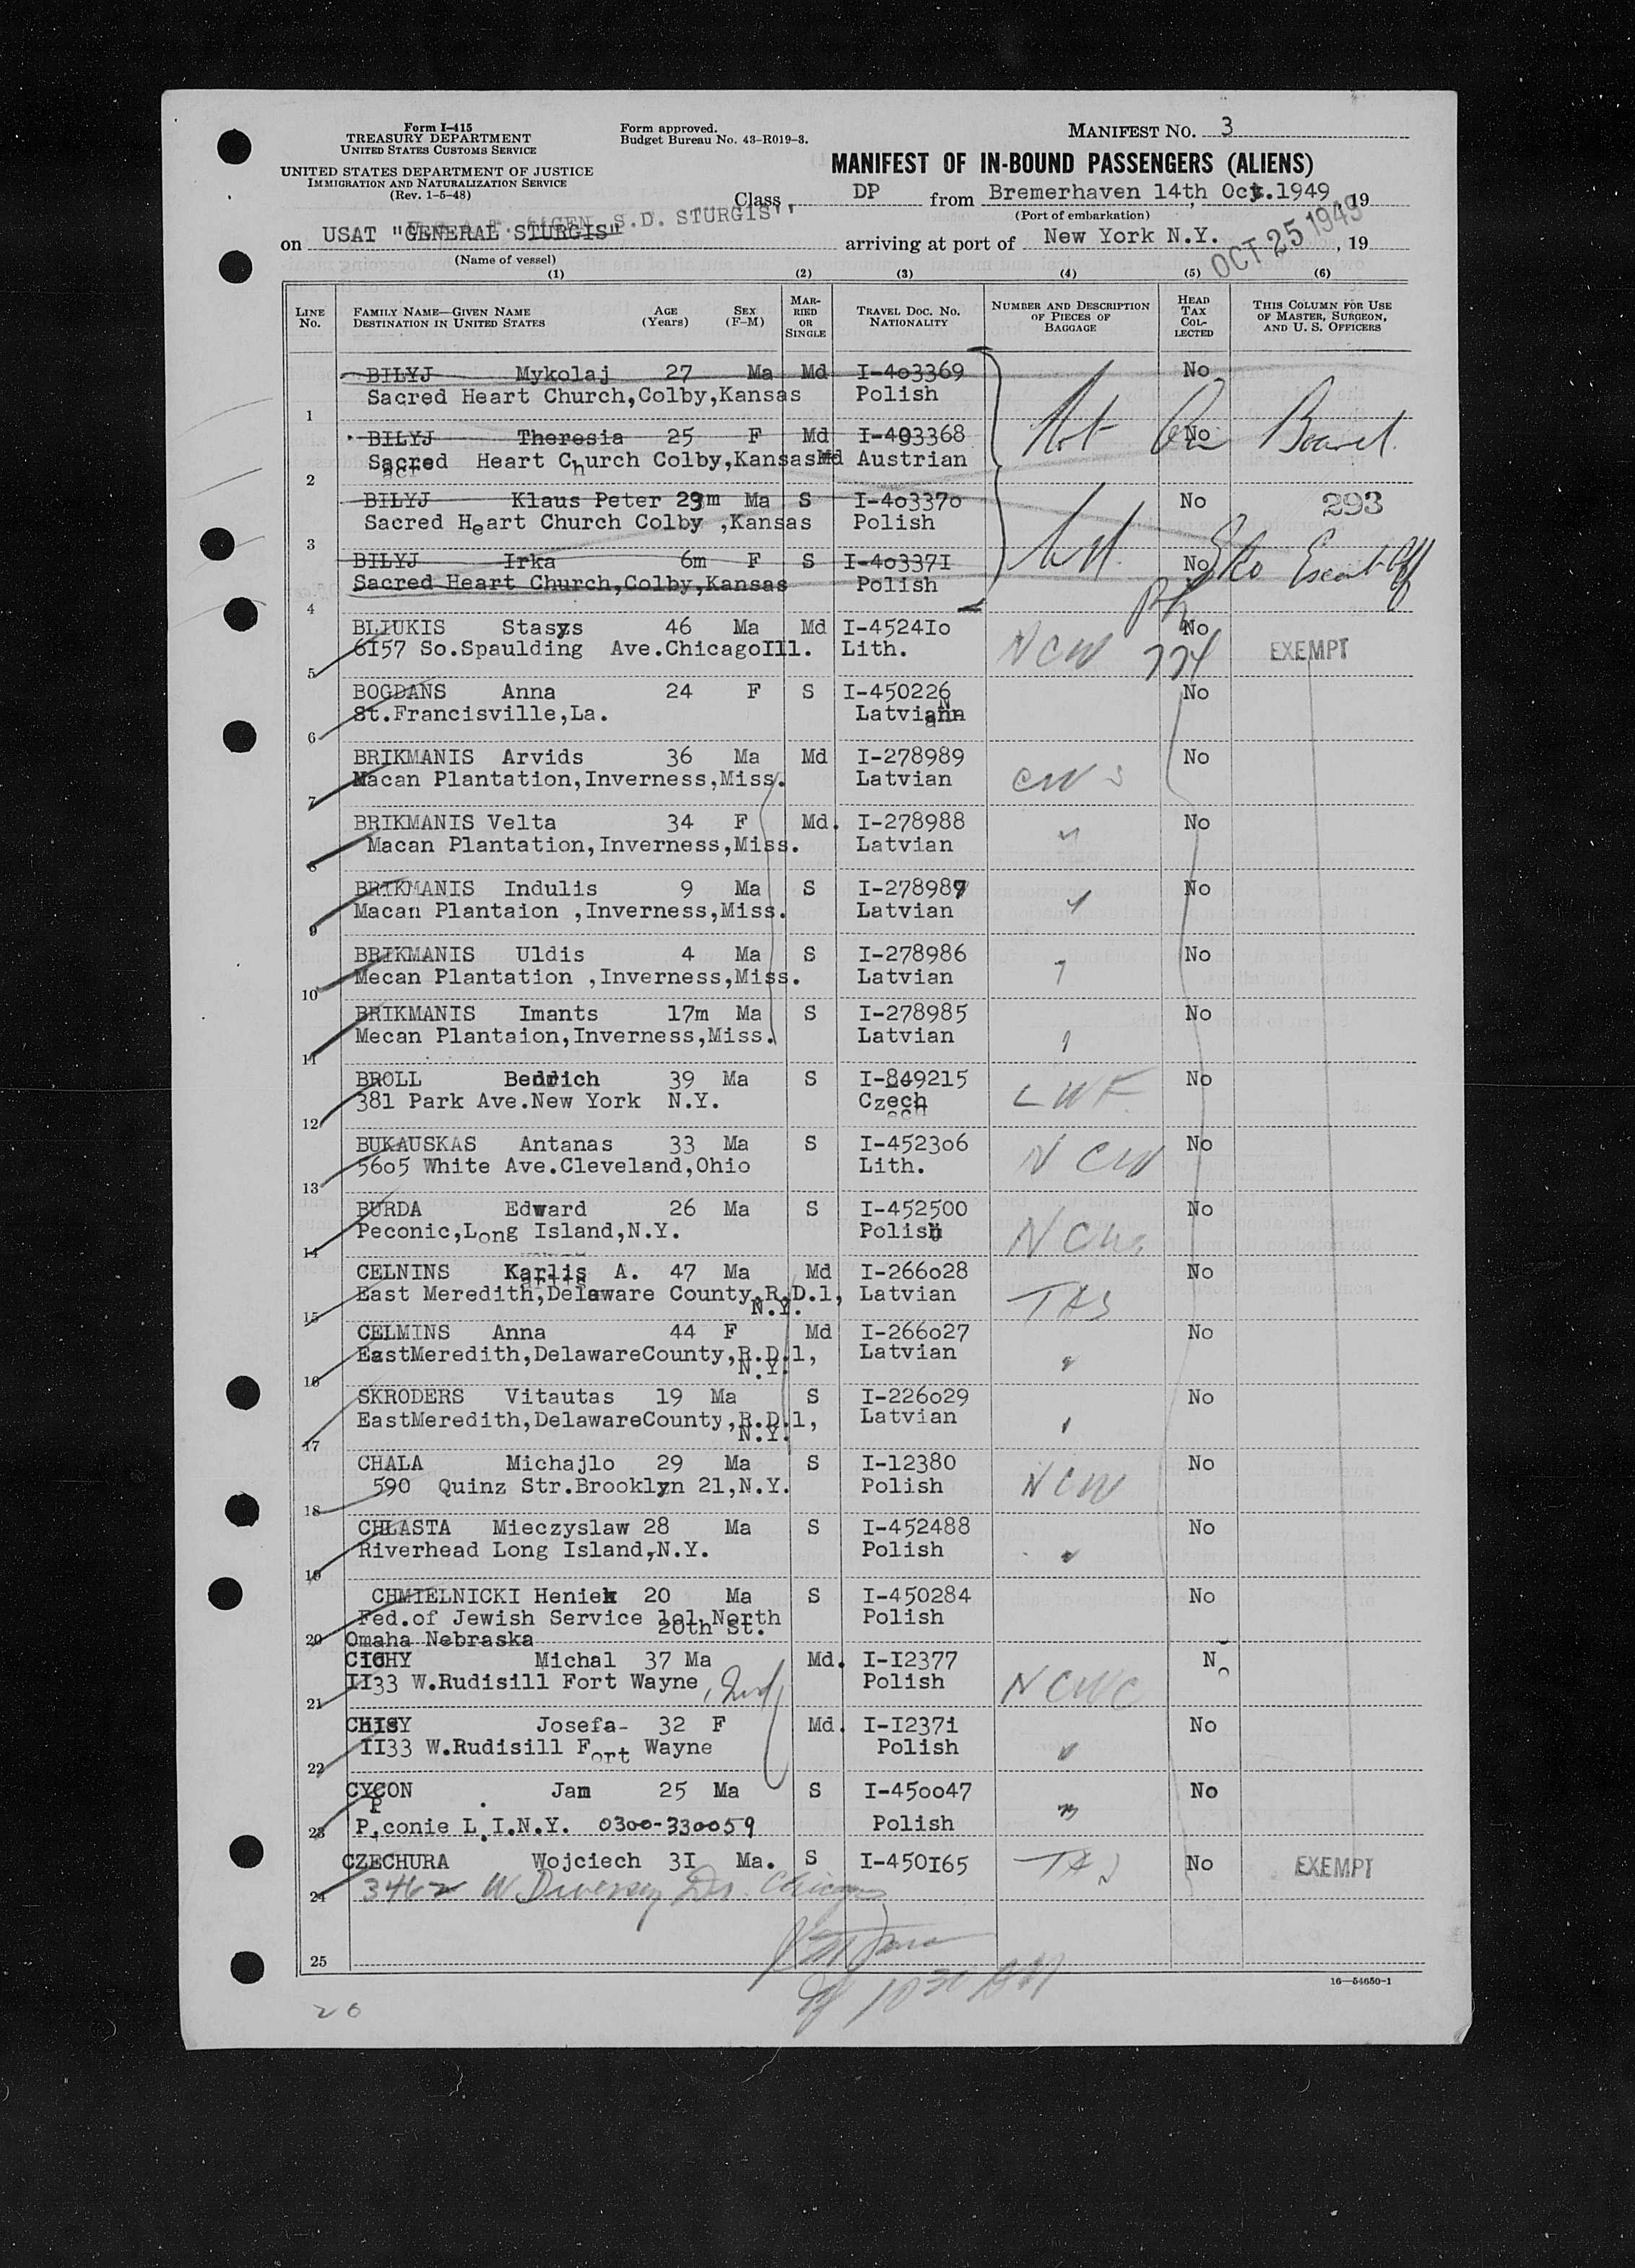 Form I-415
TREASURY DEPARTMENT
UNITED STATES CUSTOMS SERVICE
UNITED STATES DEPARTMENT OF JUSTICE
IMMIGRATION AND NATURALIZATION SERVICE
(Rev. 1-5-48)
Form approved.
Budget Bureau No. 43-R019-3.
MANIFEST NO. 3
MANIFEST OF IN-BOUND PASSENGERS (ALIENS)
Class DP from Bremerhaven 14th Oct.1949, 19
(Port of embarkation)
GEN. S.D. STURGIS"
on USAT "GENERAL STURGIS" arriving at port of New York N.Y. OCT 25 1949, 19
(Name of vessel)
(1) (2) (3) (4) (5) (6)
LINE No. FAMILY NAME—GIVEN NAME DESTINATION IN UNITED STATES AGE (Years) SEX (F-M) MARRIED OR SINGLE TRAVEL DOC. NO. NATIONALITY NUMBER AND DESCRIPTION OF PIECES OF BAGGAGE HEAD TAX COLLECTED THIS COLUMN FOR USE OF MASTER, SURGEON, AND U. S. OFFICERS
BILYJ Mykolaj 27 Ma Md I-4o3369 No
1 Sacred Heart Church,Colby,Kansas Polish
BILYJ Theresia 25 F Md I-403368 No Not On Board
2 Sacred Heart Church Colby,Kansas Md Austrian
BILYJ Klaus Peter 29m Ma S I-4o337o No 293
3 Sacred Heart Church Colby ,Kansas Polish
BILYJ Irka 6m F S I-4o337I No
4 Sacred Heart Church,Colby,Kansas Polish
BLIUKIS Stasys 46 Ma Md I-4524Io No
5 6I57 So.Spaulding Ave.ChicagoIll. Lith. NCW EXEMPT
BOGDANS Anna 24 F S I-450226 No
6 St.Francisville,La. Latvian
BRIKMANIS Arvids 36 Ma Md I-278989 No
7 Macan Plantation,Inverness,Miss. Latvian CWS
BRIKMANIS Velta 34 F Md. I-278988 No
8 Macan Plantation,Inverness,Miss. Latvian "
BRIKMANIS Indulis 9 Ma S I-278987 No
9 Macan Plantaion ,Inverness,Miss. Latvian
BRIKMANIS Uldis 4 Ma S I-278986 No
10 Mecan Plantation ,Inverness,Miss. Latvian
BRIKMANIS Imants 17m Ma S I-278985 No
11 Mecan Plantaion,Inverness,Miss. Latvian
BROLL Bedrich 39 Ma S I-849215 No
12 381 Park Ave.New York N.Y. Czech LWF
BUKAUSKAS Antanas 33 Ma S I-4523o6 No
13 56o5 White Ave.Cleveland,Ohio Lith. NCW
BURDA Edward 26 Ma S I-452500 No
14 Peconic,Long Island,N.Y. Polish NCW
CELNINS Karlis A. 47 Ma Md I-266o28 No
15 East Meredith,Delaware County,R.D.1, N.Y. Latvian TAS
CELMINS Anna 44 F Md I-266o27 No
16 EastMeredith,DelawareCounty,R.D.1, N.Y. Latvian
SKRODERS Vitautas 19 Ma S I-226o29 No
17 EastMeredith,DelawareCounty,R.D.1, N.Y. Latvian
CHALA Michajlo 29 Ma S I-12380 No
18 590 Quinz Str.Brooklyn 21,N.Y. Polish NCW
CHLASTA Mieczyslaw 28 Ma S I-452488 No
19 Riverhead Long Island,N.Y. Polish
CHMIELNICKI Heniek 20 Ma S I-450284 No
Fed.of Jewish Service 101 North 20th St. Polish
20 Omaha Nebraska
CICHY Michal 37 Ma Md. I-I2377 No
21 II33 W.Rudisill Fort Wayne, Ind Polish NCWC
CHISY Josefa- 32 F Md. I-I2371 No
22 II33 W.Rudisill Fort Wayne Polish
CYCON Jam 25 Ma S I-45oo47 No
23 P.conie L.I.N.Y. 0300-330059 Polish
CZECHURA Wojciech 3I Ma. S I-450I65 TAS No EXEMPT
24 3462 W Diversey Chicago
25
10 30 AM
16—54650-1
20